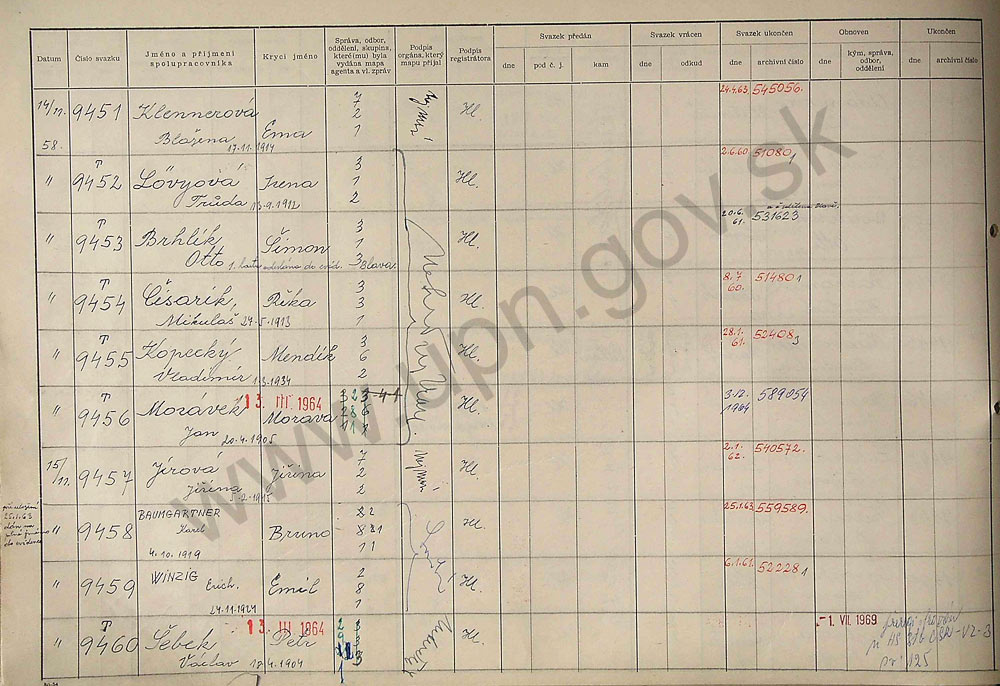 Datum
Číslo svazku
Jméno a příjmení spolupracovníka
Krycí jméno
Správa, odbor, oddělení, skupina, které(mu) byla vydána mapa agenta a vl. zpráv
Podpis orgána, který mapu přijal
Podpis registrátora
Svazek předán
dne pod č. j. kam
Svazek vrácen
dne odkud
Svazek ukončen
dne archivní číslo
Obnoven
dne kým, správa, odbor, oddělení
Ukončen
dne archivní číslo
14/11. 58. 9451 Klennerová Ema 7 Hl. 24.4.63 545056.
Blažena 17.11.1914 2 1
" T 9452 Lövyová Irena 3 Hl. 2.6.60. 51080 1
Trůda 13.9.1912 1 2
" T 9453 Brhlík Šimon 3 Hl. 20.6.61. 531623
Otto 1 3 Blava.
" T 9454 Čisarik, Říka 3 Hl. 8.7.60. 51480 1
Mikuláš 24.5.1913 3 1
" T 9455 Kopecký Mendík 3 Hl. 28.1.61. 52408 3
Vladimír 1.3.1934 6 2
" T 9456 Morávek 13. III 1964 Morava Hl. 3.12.1964 589054
Jan 20.4.1905
15/11. 9457 Jírová Jiřina 7 Hl. 2.1.62. 540572.
Jiřina 5.2.1915 2 2
25.1.63
" 9458 BAUMGARTNER Bruno Hl. 25.1.63 559589.
Karel
4.10.1919
" 9459 WINZIG Erich. Emil 2 Hl. 6.1.61. 52228 1
24.11.1924 8 1
" T 9460 Šebek 13. III 1964 Petr Hl. -1. VII. 1969
Václav 18.4.1904
www.upn.gov.sk